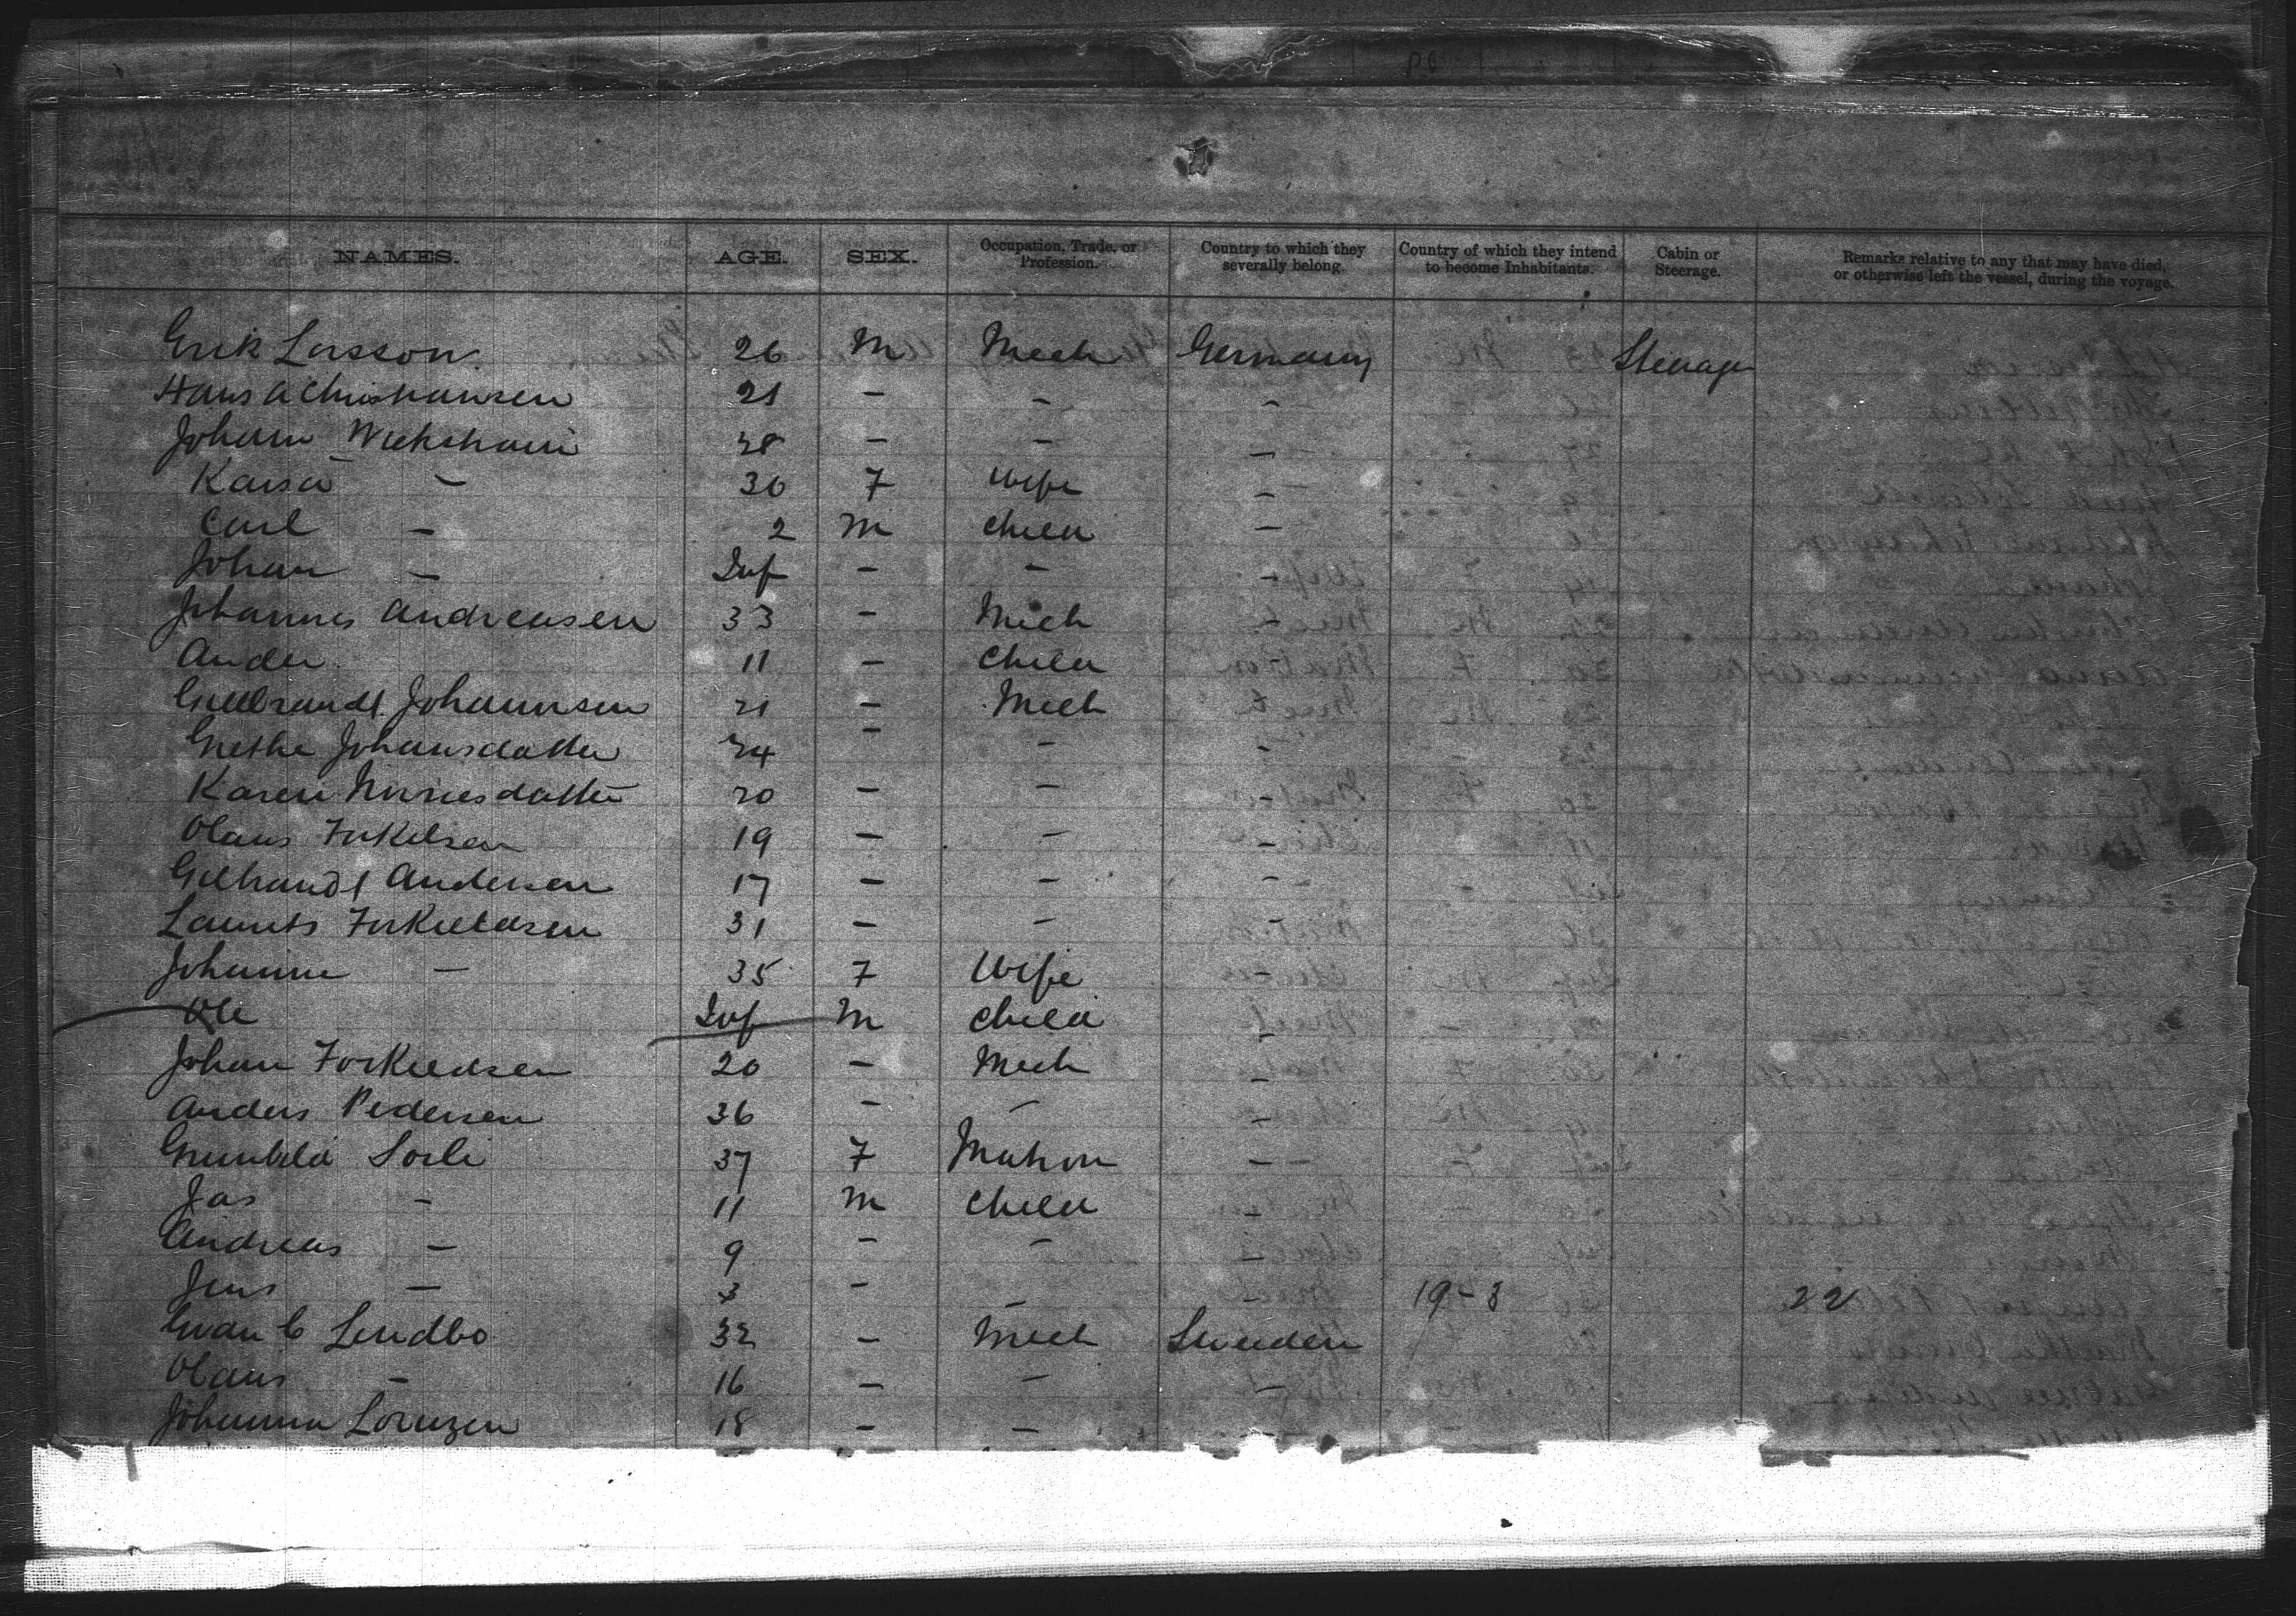 NAMES. AGE. SEX. Occupation, Trade, or Profession. Country to which they severally belong. Country of which they intend to become Inhabitants. Cabin or Steerage. Remarks relative to any that may have died, or otherwise left the vessel, during the voyage.
Erik Larsson 26 M Mech Germany Steerage
Hans A Christiansen 21 - - -
Johann 28 - - -
Kaisa - 30 F Wife -
Carl - 2 M Child -
Johan - Inf - - -
Johannes Andreasen 33 - Mech -
Ander 11 - Child
Gulbrandt Johannsen 21 - Mech
Grethe Johansdatter 24 - - -
Karen 20 - - -
Olaus Torkelsen 19 - - -
Gulbrandt Andersen 17 - - -
Laurits Torkildsen 31 - - -
Johanne - 35 F Wife -
Ole Inf M Child -
Johan Torkildsen 20 - Mech -
Anders Pedersen 36 - - -
Gunhilda Sorli 37 F Matron -
Jas - 11 M Child -
Andreas - 9 - - -
Jens - 3 - - - 19-3 22
Lindbo 32 - Mech Sweden
Olaus - 16 - - -
Johanna Lorenzen 18 - - -